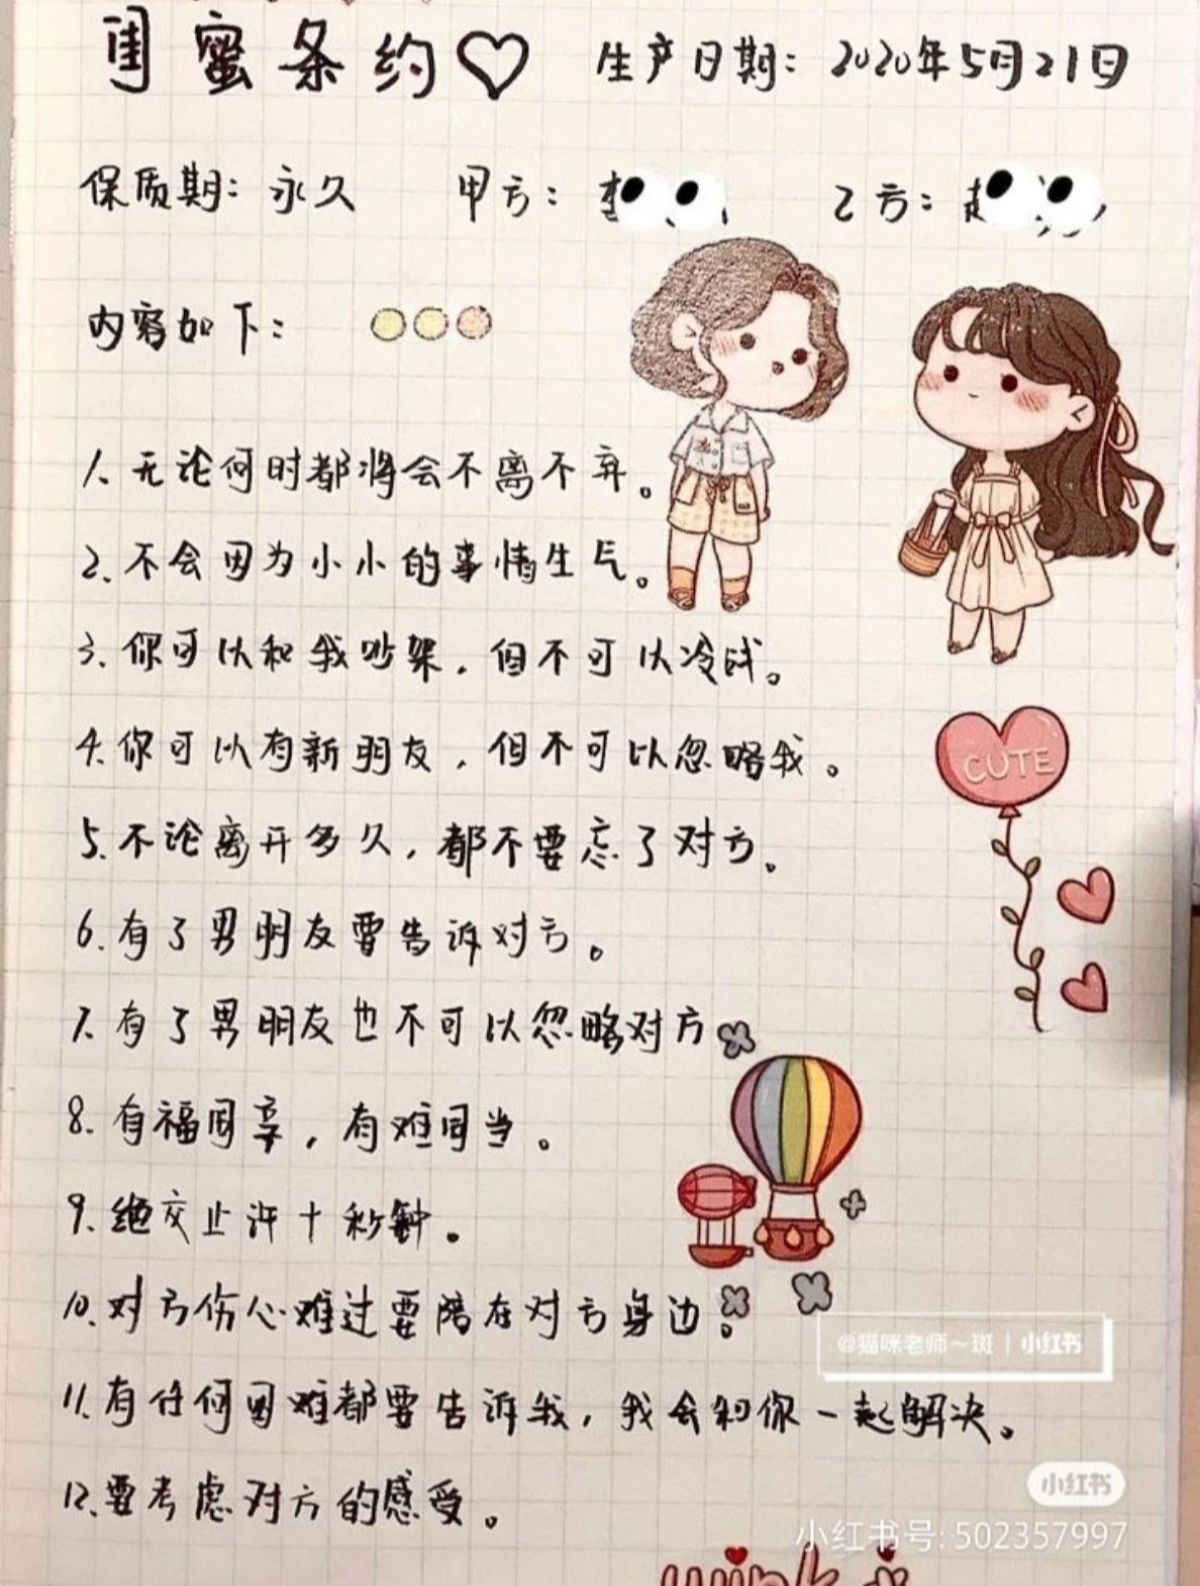 闺蜜条约♡ 生产日期：2020年5月21日
保质期：永久 甲方：李 乙方：赵
内容如下：
1、无论何时都将会不离不弃。
2、不会因为小小的事情生气。
3、你可以和我吵架，但不可以冷战。
4、你可以有新朋友，但不可以忽略我。
CUTE
5、不论离开多久，都不要忘了对方。
6、有了男朋友要告诉对方。
7、有了男朋友也不可以忽略对方
8、有福同享，有难同当。
9、绝交止许十秒钟。
10、对方伤心难过要陪在对方身边。
@猫咪老师～斑｜小红书
11、有任何困难都要告诉我，我会和你一起解决。
12、要考虑对方的感受。
小红书
小红书号: 502357997